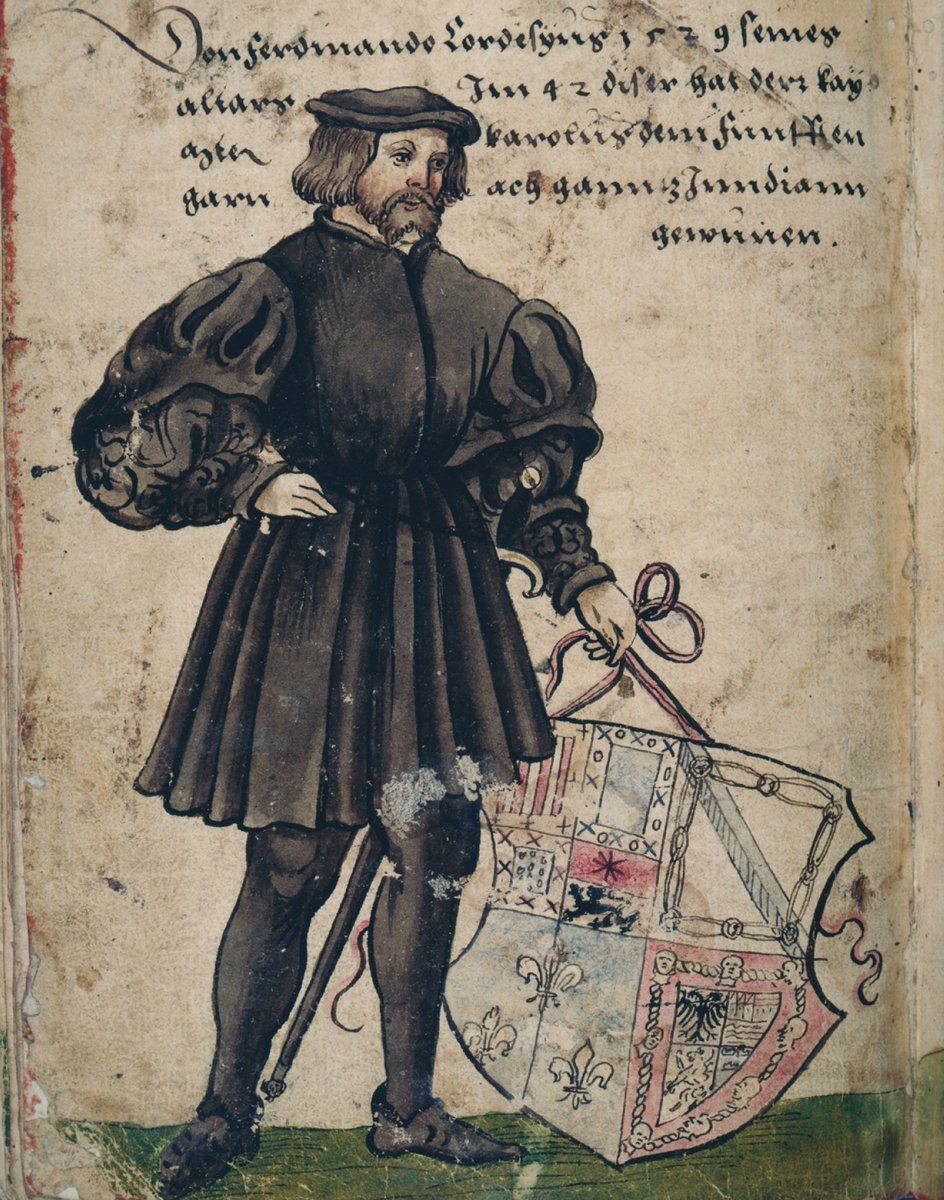 Don ferdinando Cordesyus 1529 seines
alltars Im 42 diser hat derr kay
karolus dem funfften
garn ach ganntz Inndiann
gewunnen.